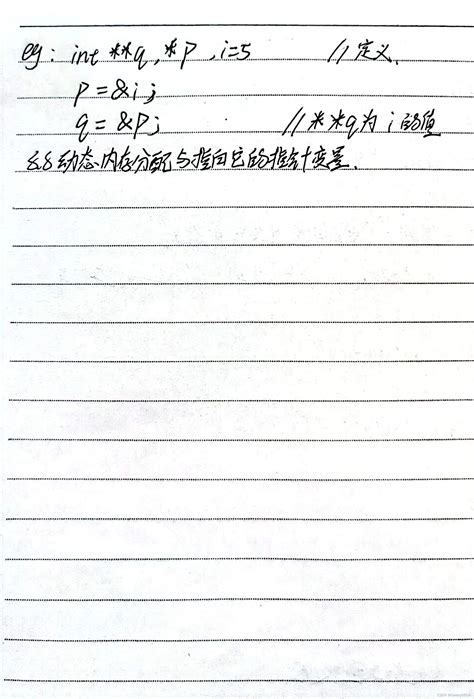 eg: int **q, *p, i=5 //定义.
p=&i;
q=&p; //**q为i的值
8.8动态内存分配与指向它的指针变量.